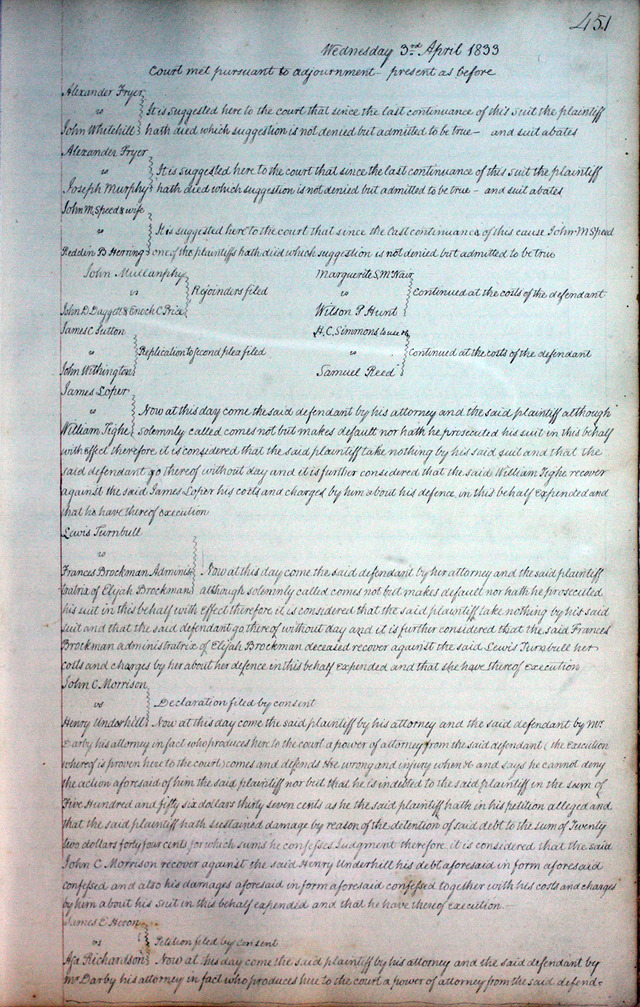 451
Wednesday 3rd April 1833
Court met pursuant to adjournment – present as before
Alexander Fryer
vs It is suggested here to the court that since the last continuance of this suit the plaintiff
John Whitehill hath died which suggestion is not denied but admitted to be true – and suit abates
Alexander Fryer
vs It is suggested here to the court that since the last continuance of this suit the plaintiff
Joseph Murphy hath died which suggestion is not denied but admitted to be true – and suit abates
John M Speed & wife
vs It is suggested here to the court that since the last continuance of this cause John M Speed
Reddin B Herring one of the plaintiffs hath died which suggestion is not denied but admitted to be true
John Mullanphy
vs Rejoinders filed
John D. Daggett & Enoch C Price
Marguerite S. McNair
vs continued at the costs of the defendant
Wilson P Hunt
James C Sutton
vs Replication to second plea filed
John Withington
H. C. Simmons to use
vs continued at the costs of the defendant
Samuel Reed
James Loper
vs Now at this day come the said defendant by his attorney and the said plaintiff although
William Tighe solemnly called comes not but makes default nor hath he prosecuted his suit in this behalf
with effect therefore it is considered that the said plaintiff take nothing by his said suit and that the
said defendant go thereof without day and it is further considered that the said William Tighe recover
against the said James Loper his costs and charges by him about his defence in this behalf expended and
that he have thereof execution
Lewis Turnbull
vs
Frances Brockman Adminis Now at this day come the said defendant by her attorney and the said plaintiff
tratrix of Elijah Brockman although solemnly called comes not but makes default nor hath he prosecuted
his suit in this behalf with effect therefore it is considered that the said plaintiff take nothing by his said
suit and that the said defendant go thereof without day and it is further considered that the said Frances
Brockman administratrix of Elijah Brockman deceased recover against the said Lewis Turnbull her
costs and charges by her about her defence in this behalf expended and that she have thereof execution
John C Morrison
vs Declaration filed by consent
Henry Underhill Now at this day come the said plaintiff by his attorney and the said defendant by Mr
Darby his attorney in fact who produces here to the court a power of attorney from the said defendant (the execution
whereof is proven here to the court) comes and defends the wrong and injury when &c and says he cannot deny
the action aforesaid of him the said plaintiff nor but that he is indebted to the said plaintiff in the sum of
Five Hundred and fifty six dollars thirty seven cents as he the said plaintiff hath in his petition alleged and
that the said plaintiff hath sustained damage by reason of the detention of said debt to the sum of Twenty
two dollars forty four cents for which sums he confesses Judgment therefore it is considered that the said
John C Morrison recover against the said Henry Underhill his debt aforesaid in form aforesaid
confessed and also his damages aforesaid in form aforesaid confessed together with his costs and charges
by him about his suit in this behalf expended and that he have thereof execution –
James E Heron
vs Petition filed by consent
Asa Richardson Now at this day come the said plaintiff by his attorney and the said defendant by
Mr Darby his attorney in fact who produces here to the court a power of attorney from the said defend-